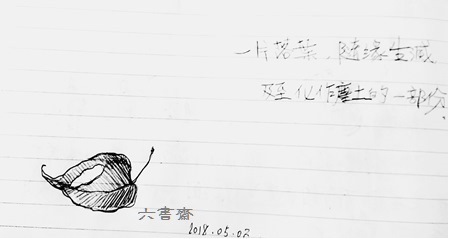 一片落葉，随缘生滅
及至化作塵土的一部份.
六書齋
2018.05.07